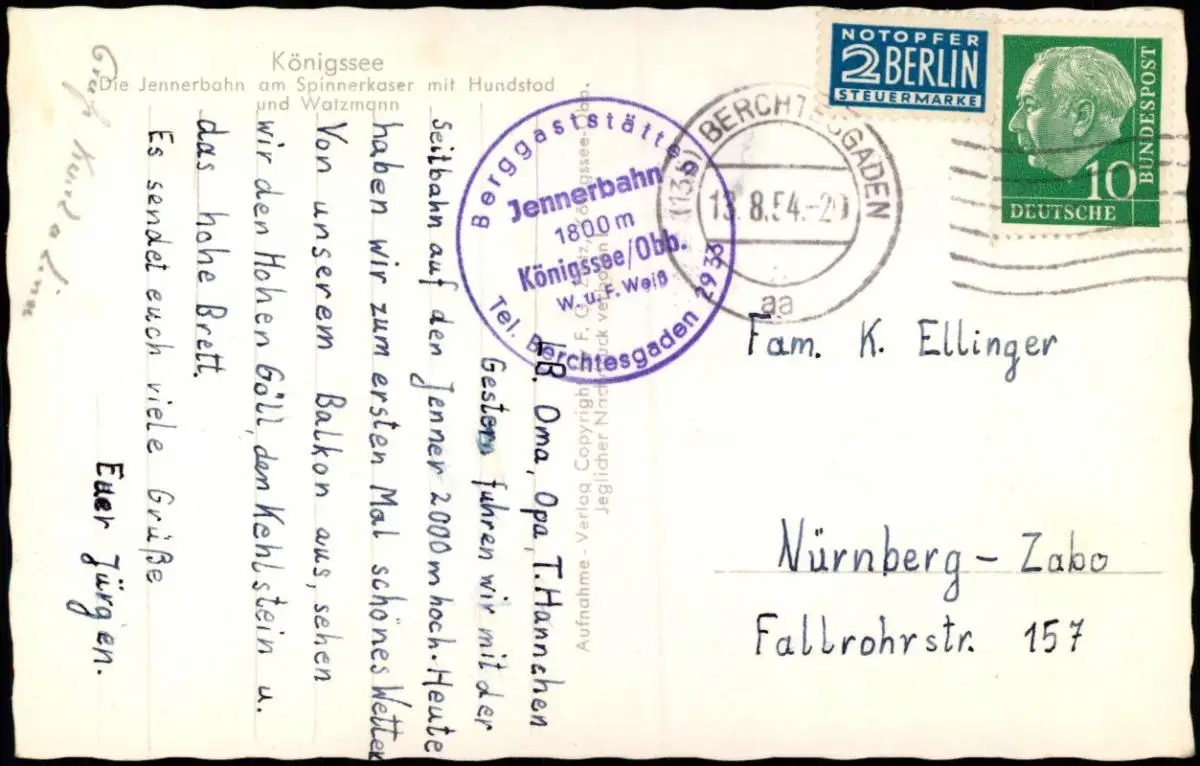 Königssee
Die Jennerbahn am Spinnerkaser mit Hundstod
und Watzmann
NOTOPFER
2 BERLIN
STEUERMARKE
10
DEUTSCHE
BUNDESPOST
(13b) BERCHTESGADEN
13.8.54.-20
aa
Berggaststätte
Jennerbahn
1800m
Königssee/Obb.
W. u. F. Weiß
Tel. Berchtesgaden 2933
LB. Oma, Opa, T. Hannchen
Gestern fuhren wir mit der
Seilbahn auf den Jenner 2000m hoch. Heute
haben wir zum ersten Mal schönes Wetter
Von unserem Balkon aus, sehen
wir den Hohen Göll, den Kehlstein u.
das hohe Brett.
Es sendet euch viele Grüße
Euer Jürgen.
Aufnahme - Verlag Copyright F.
Jeglicher Nachdruck verboten
Fam. K. Ellinger
Nürnberg - Zabo
Fallrohrstr. 157